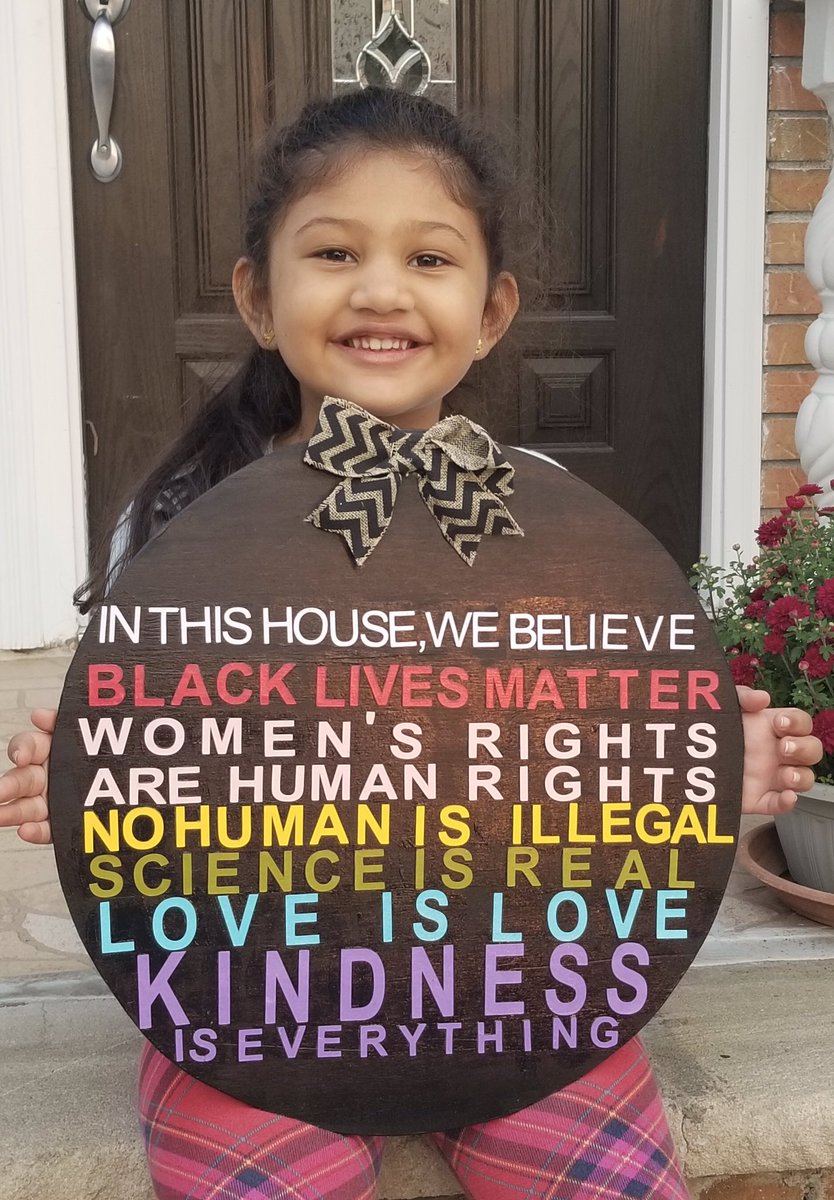 IN THIS HOUSE, WE BELIEVE
BLACK LIVES MATTER
WOMEN'S RIGHTS
ARE HUMAN RIGHTS
NO HUMAN IS ILLEGAL
SCIENCE IS REAL
LOVE IS LOVE
KINDNESS
IS EVERYTHING